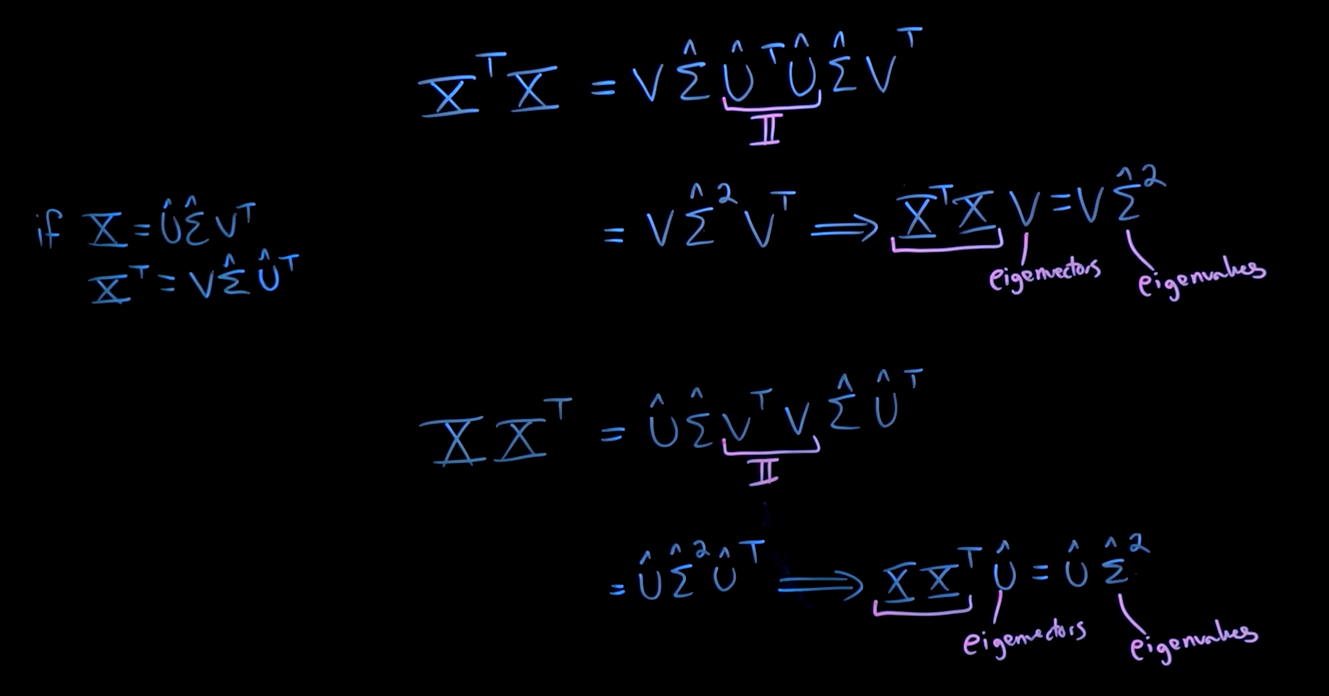 X^T X = V Σ̂ Û^T Û Σ̂ V^T
𝕀
if X = Û Σ̂ V^T
X^T = V Σ̂ Û^T
= V Σ̂^2 V^T ⟹ X^T X V = V Σ̂^2
eigenvectors eigenvalues
X X^T = Û Σ̂ V^T V Σ̂ Û^T
𝕀
= Û Σ̂^2 Û^T ⟹ X X^T Û = Û Σ̂^2
eigenvectors eigenvalues